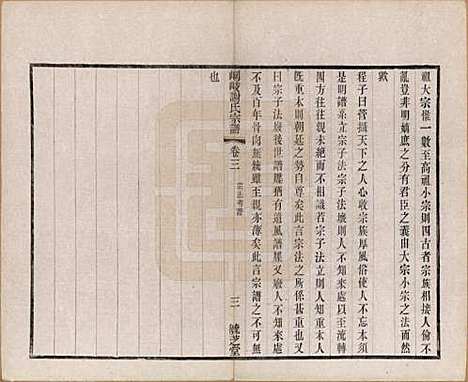 祖大宗惟一數至高祖小宗則四古者宗族相接人倫不
亂豈非明嫡庶之分有君臣之義由大宗小宗之法而然
歟
程子曰管攝天下人心收宗族厚風俗使人不忘本須
是明譜系立宗子法宗子法壞則人不知來處以至流轉
四方往往親未絕而不相識若宗子法立則人知尊祖重本人
既重本則朝廷之勢自尊矣此言宗法之所係甚重也又
曰宗子法廢後世譜牒猶有遺風譜牒又廢人不知來處
不及百年骨肉無統雖至親亦薄矣此言宗譜之不可無
也
謝氏宗譜
卷三
宗法考證
三